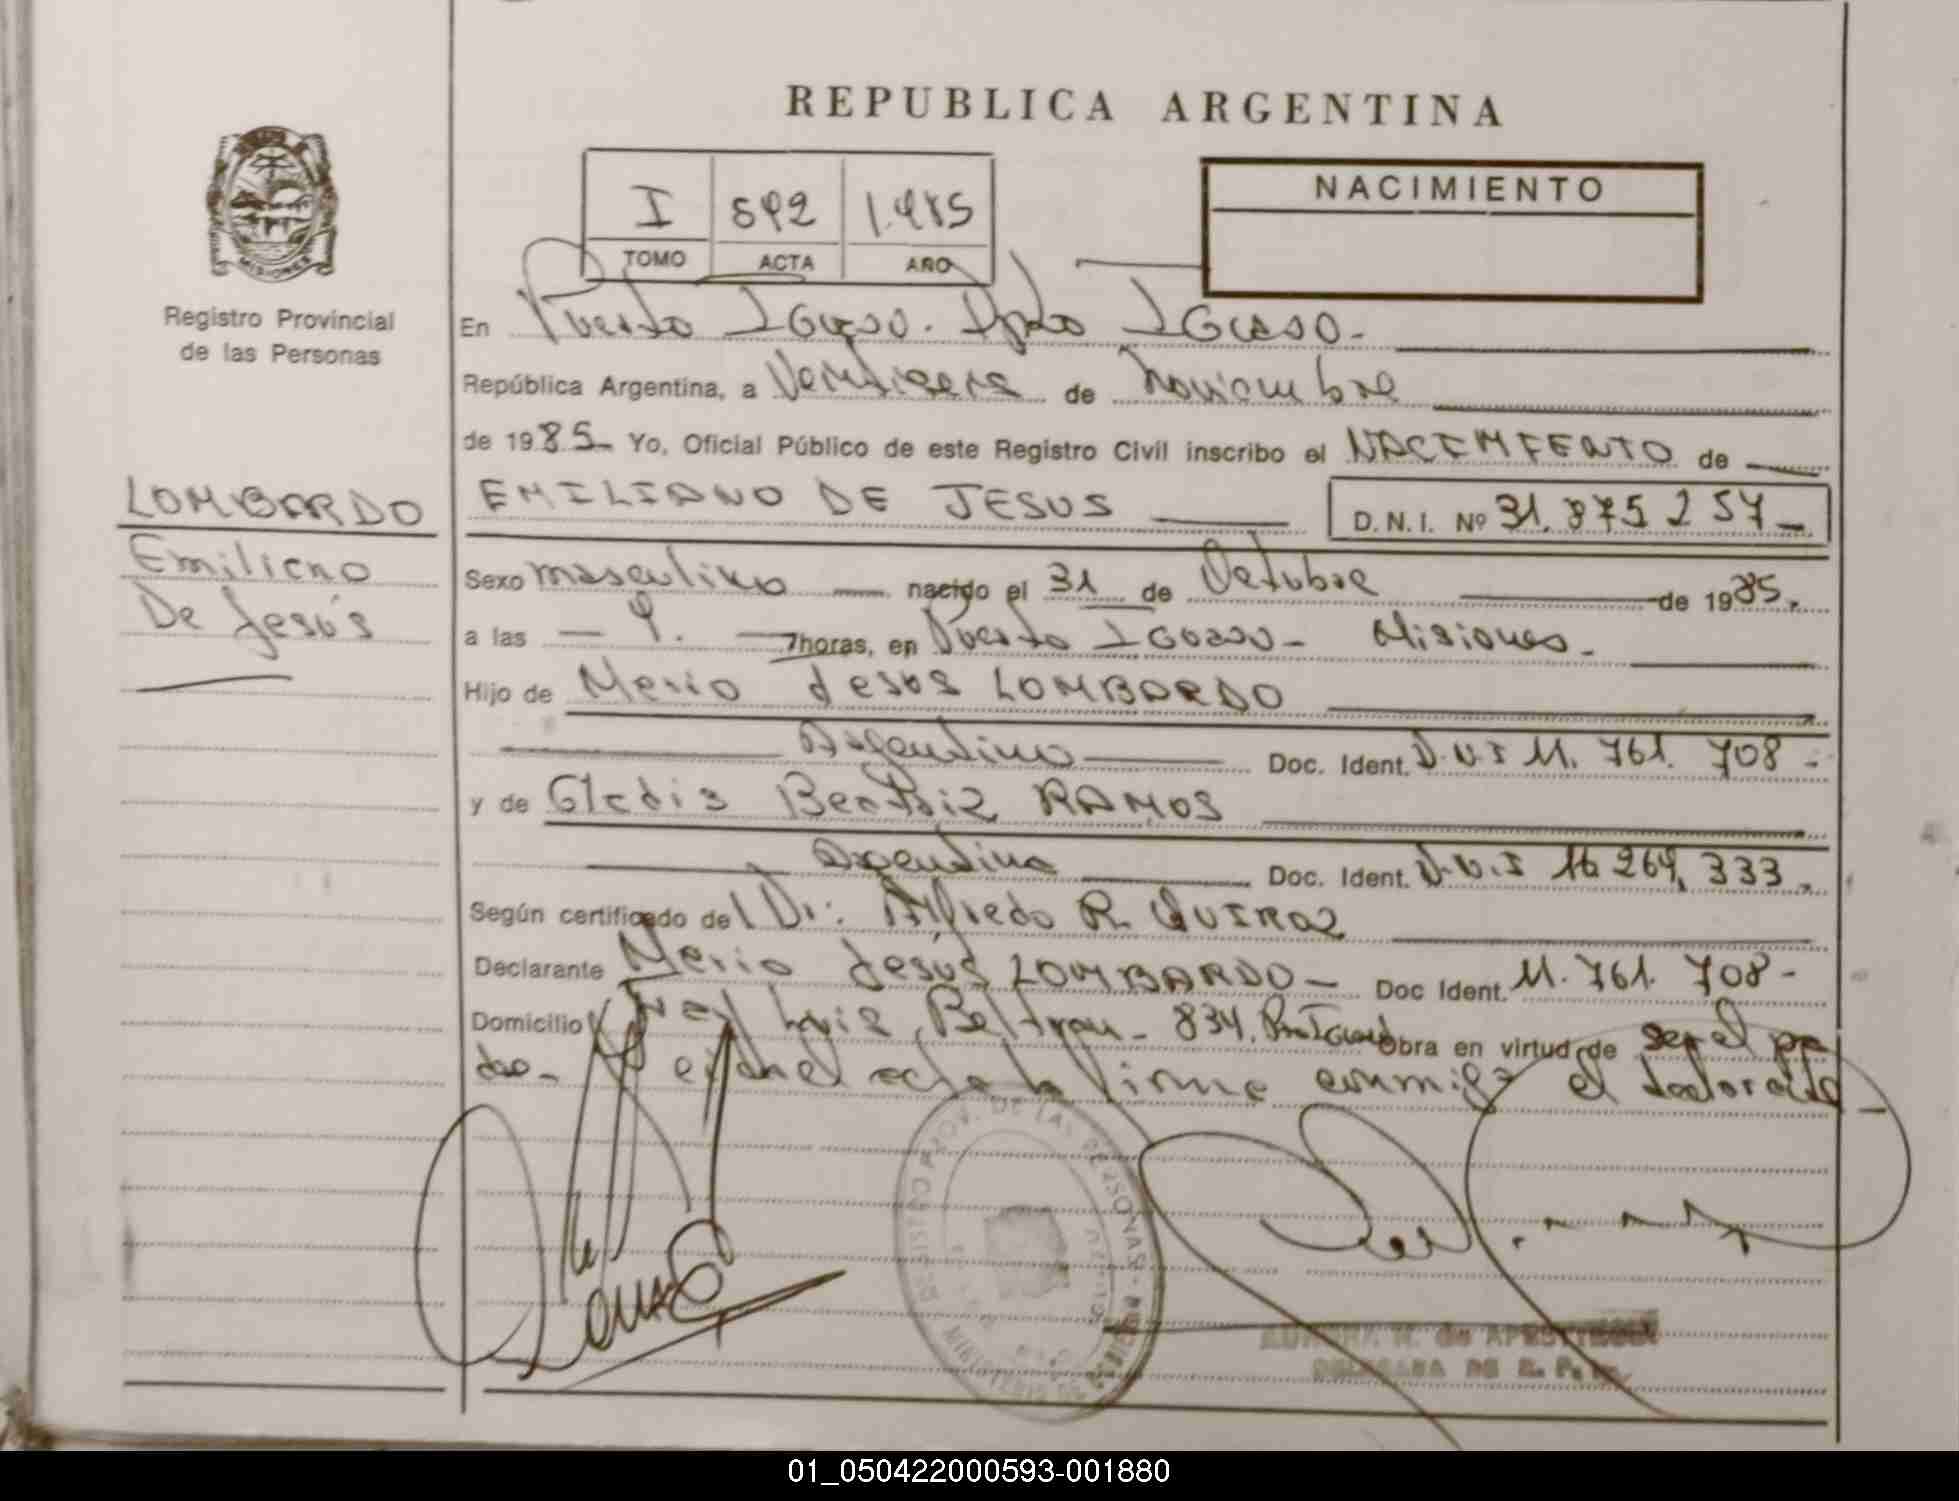 REPUBLICA ARGENTINA
I 592 1.985
TOMO ACTA AÑO
NACIMIENTO
MISIONES
Registro Provincial
de las Personas
En Puerto IGUASU. Dpto IGUASU.-
República Argentina, a de Noviembre
de 1985- Yo, Oficial Público de este Registro Civil inscribo el NACIMIENTO de
LOMBARDO
Emiliano
De Jesús
EMILIANO DE JESUS D.N.I. Nº 31.875 257-
Sexo masculino nacido el 31 de Octubre de 1985.
a las - 9. - horas, en Puerto IGUASU- Misiones.-
Hijo de Mario Jesus LOMBARDO
Argentino Doc. Ident. D.N.I 11.761.708-
y de Gladis Beatriz RAMOS
Argentina Doc. Ident. D.N.I 16 264.333.
Según certificado del Dr: Alfredo R. QUIROZ
Declarante Mario Jesús LOMBARDO- Doc Ident. 11.761.708-
Domicilio Fray Luis Beltran- 834. Obra en virtud de ser el pa
dre- el acta la firma conmigo el declarante-
REGISTRO PROV. DE LAS PERSONAS
MINISTERIO DE
DELEGADA DE R. P. P.
01_050422000593-001880